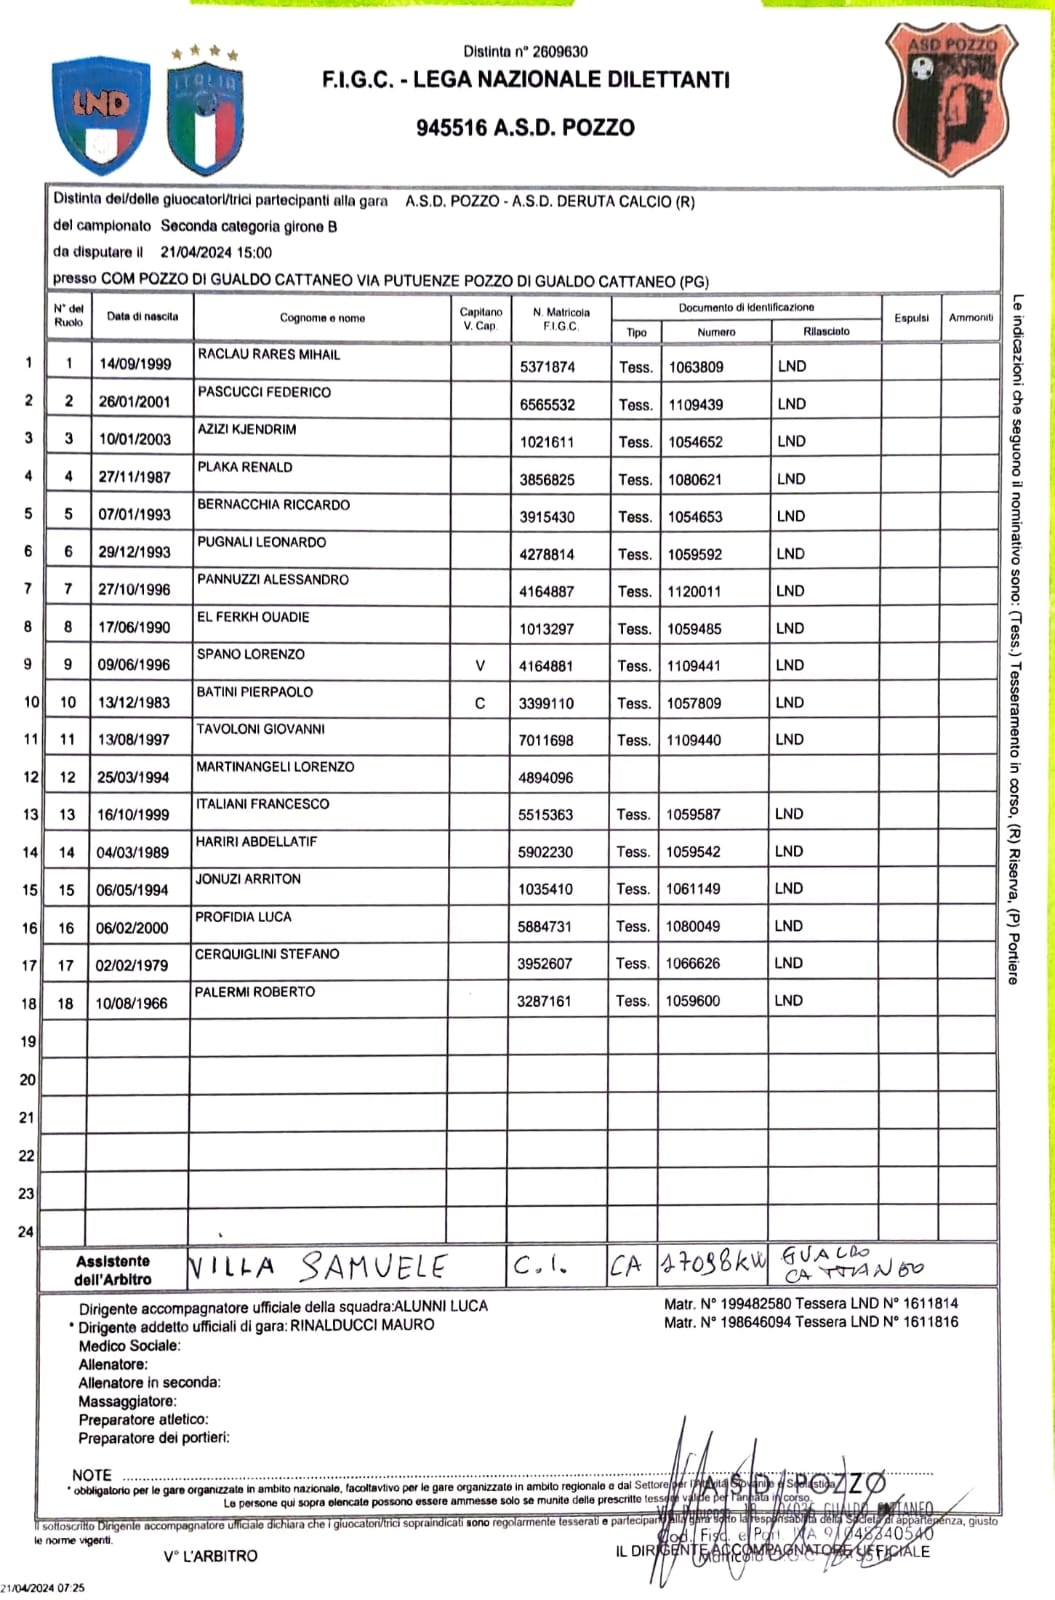 LND
ITALIA
ASD POZZO
Distinta n° 2609630
F.I.G.C. - LEGA NAZIONALE DILETTANTI
945516 A.S.D. POZZO
Distinta dei/delle giuocatori/trici partecipanti alla gara A.S.D. POZZO - A.S.D. DERUTA CALCIO (R)
del campionato Seconda categoria girone B
da disputare il 21/04/2024 15:00
presso COM POZZO DI GUALDO CATTANEO VIA PUTUENZE POZZO DI GUALDO CATTANEO (PG)
N° del Ruolo Data di nascita Cognome e nome Capitano V. Cap. N. Matricola F.I.G.C. Documento di Identificazione Espulsi Ammoniti
Tipo Numero Rilasciato
1 1 14/09/1999 RACLAU RARES MIHAIL 5371874 Tess. 1063809 LND
2 2 26/01/2001 PASCUCCI FEDERICO 6565532 Tess. 1109439 LND
3 3 10/01/2003 AZIZI KJENDRIM 1021611 Tess. 1054652 LND
4 4 27/11/1987 PLAKA RENALD 3856825 Tess. 1080621 LND
5 5 07/01/1993 BERNACCHIA RICCARDO 3915430 Tess. 1054653 LND
6 6 29/12/1993 PUGNALI LEONARDO 4278814 Tess. 1059592 LND
7 7 27/10/1996 PANNUZZI ALESSANDRO 4164887 Tess. 1120011 LND
8 8 17/06/1990 EL FERKH OUADIE 1013297 Tess. 1059485 LND
9 9 09/06/1996 SPANO LORENZO V 4164881 Tess. 1109441 LND
10 10 13/12/1983 BATINI PIERPAOLO C 3399110 Tess. 1057809 LND
11 11 13/08/1997 TAVOLONI GIOVANNI 7011698 Tess. 1109440 LND
12 12 25/03/1994 MARTINANGELI LORENZO 4894096
13 13 16/10/1999 ITALIANI FRANCESCO 5515363 Tess. 1059587 LND
14 14 04/03/1989 HARIRI ABDELLATIF 5902230 Tess. 1059542 LND
15 15 06/05/1994 JONUZI ARRITON 1035410 Tess. 1061149 LND
16 16 06/02/2000 PROFIDIA LUCA 5884731 Tess. 1080049 LND
17 17 02/02/1979 CERQUIGLINI STEFANO 3952607 Tess. 1066626 LND
18 18 10/08/1966 PALERMI ROBERTO 3287161 Tess. 1059600 LND
19
20
21
22
23
24
Assistente dell'Arbitro VILLA SAMUELE C.I. CA 17098KW GUALDO CATTANEO
Dirigente accompagnatore ufficiale della squadra:ALUNNI LUCA Matr. N° 199482580 Tessera LND N° 1611814
* Dirigente addetto ufficiali di gara: RINALDUCCI MAURO Matr. N° 198646094 Tessera LND N° 1611816
Medico Sociale:
Allenatore:
Allenatore in seconda:
Massaggiatore:
Preparatore atletico:
Preparatore dei portieri:
NOTE
* obbligatorio per le gare organizzate in ambito nazionale, facoltavtivo per le gare organizzate in ambito regionale e dal Settore per l'Attività Giovanile e Scolastica
Le persone qui sopra elencate possono essere ammesse solo se munite delle prescritte tessere valide per l'annata in corso.
Il sottoscritto Dirigente accompagnatore ufficiale dichiara che i giuocatori/trici sopraindicati sono regolarmente tesserati e partecipano alla gara sotto la responsabilità della Società di appartenenza, giusto
le norme vigenti.
V° L'ARBITRO
IL DIRIGENTE ACCOMPAGNATORE UFFICIALE
A.S.D. POZZO
06035 GUALDO CATTANEO
Cod. Fisc. e Part. IVA
21/04/2024 07:25
Le indicazioni che seguono il nominativo sono: (Tess.) Tesseramento in corso, (R) Riserva, (P) Portiere